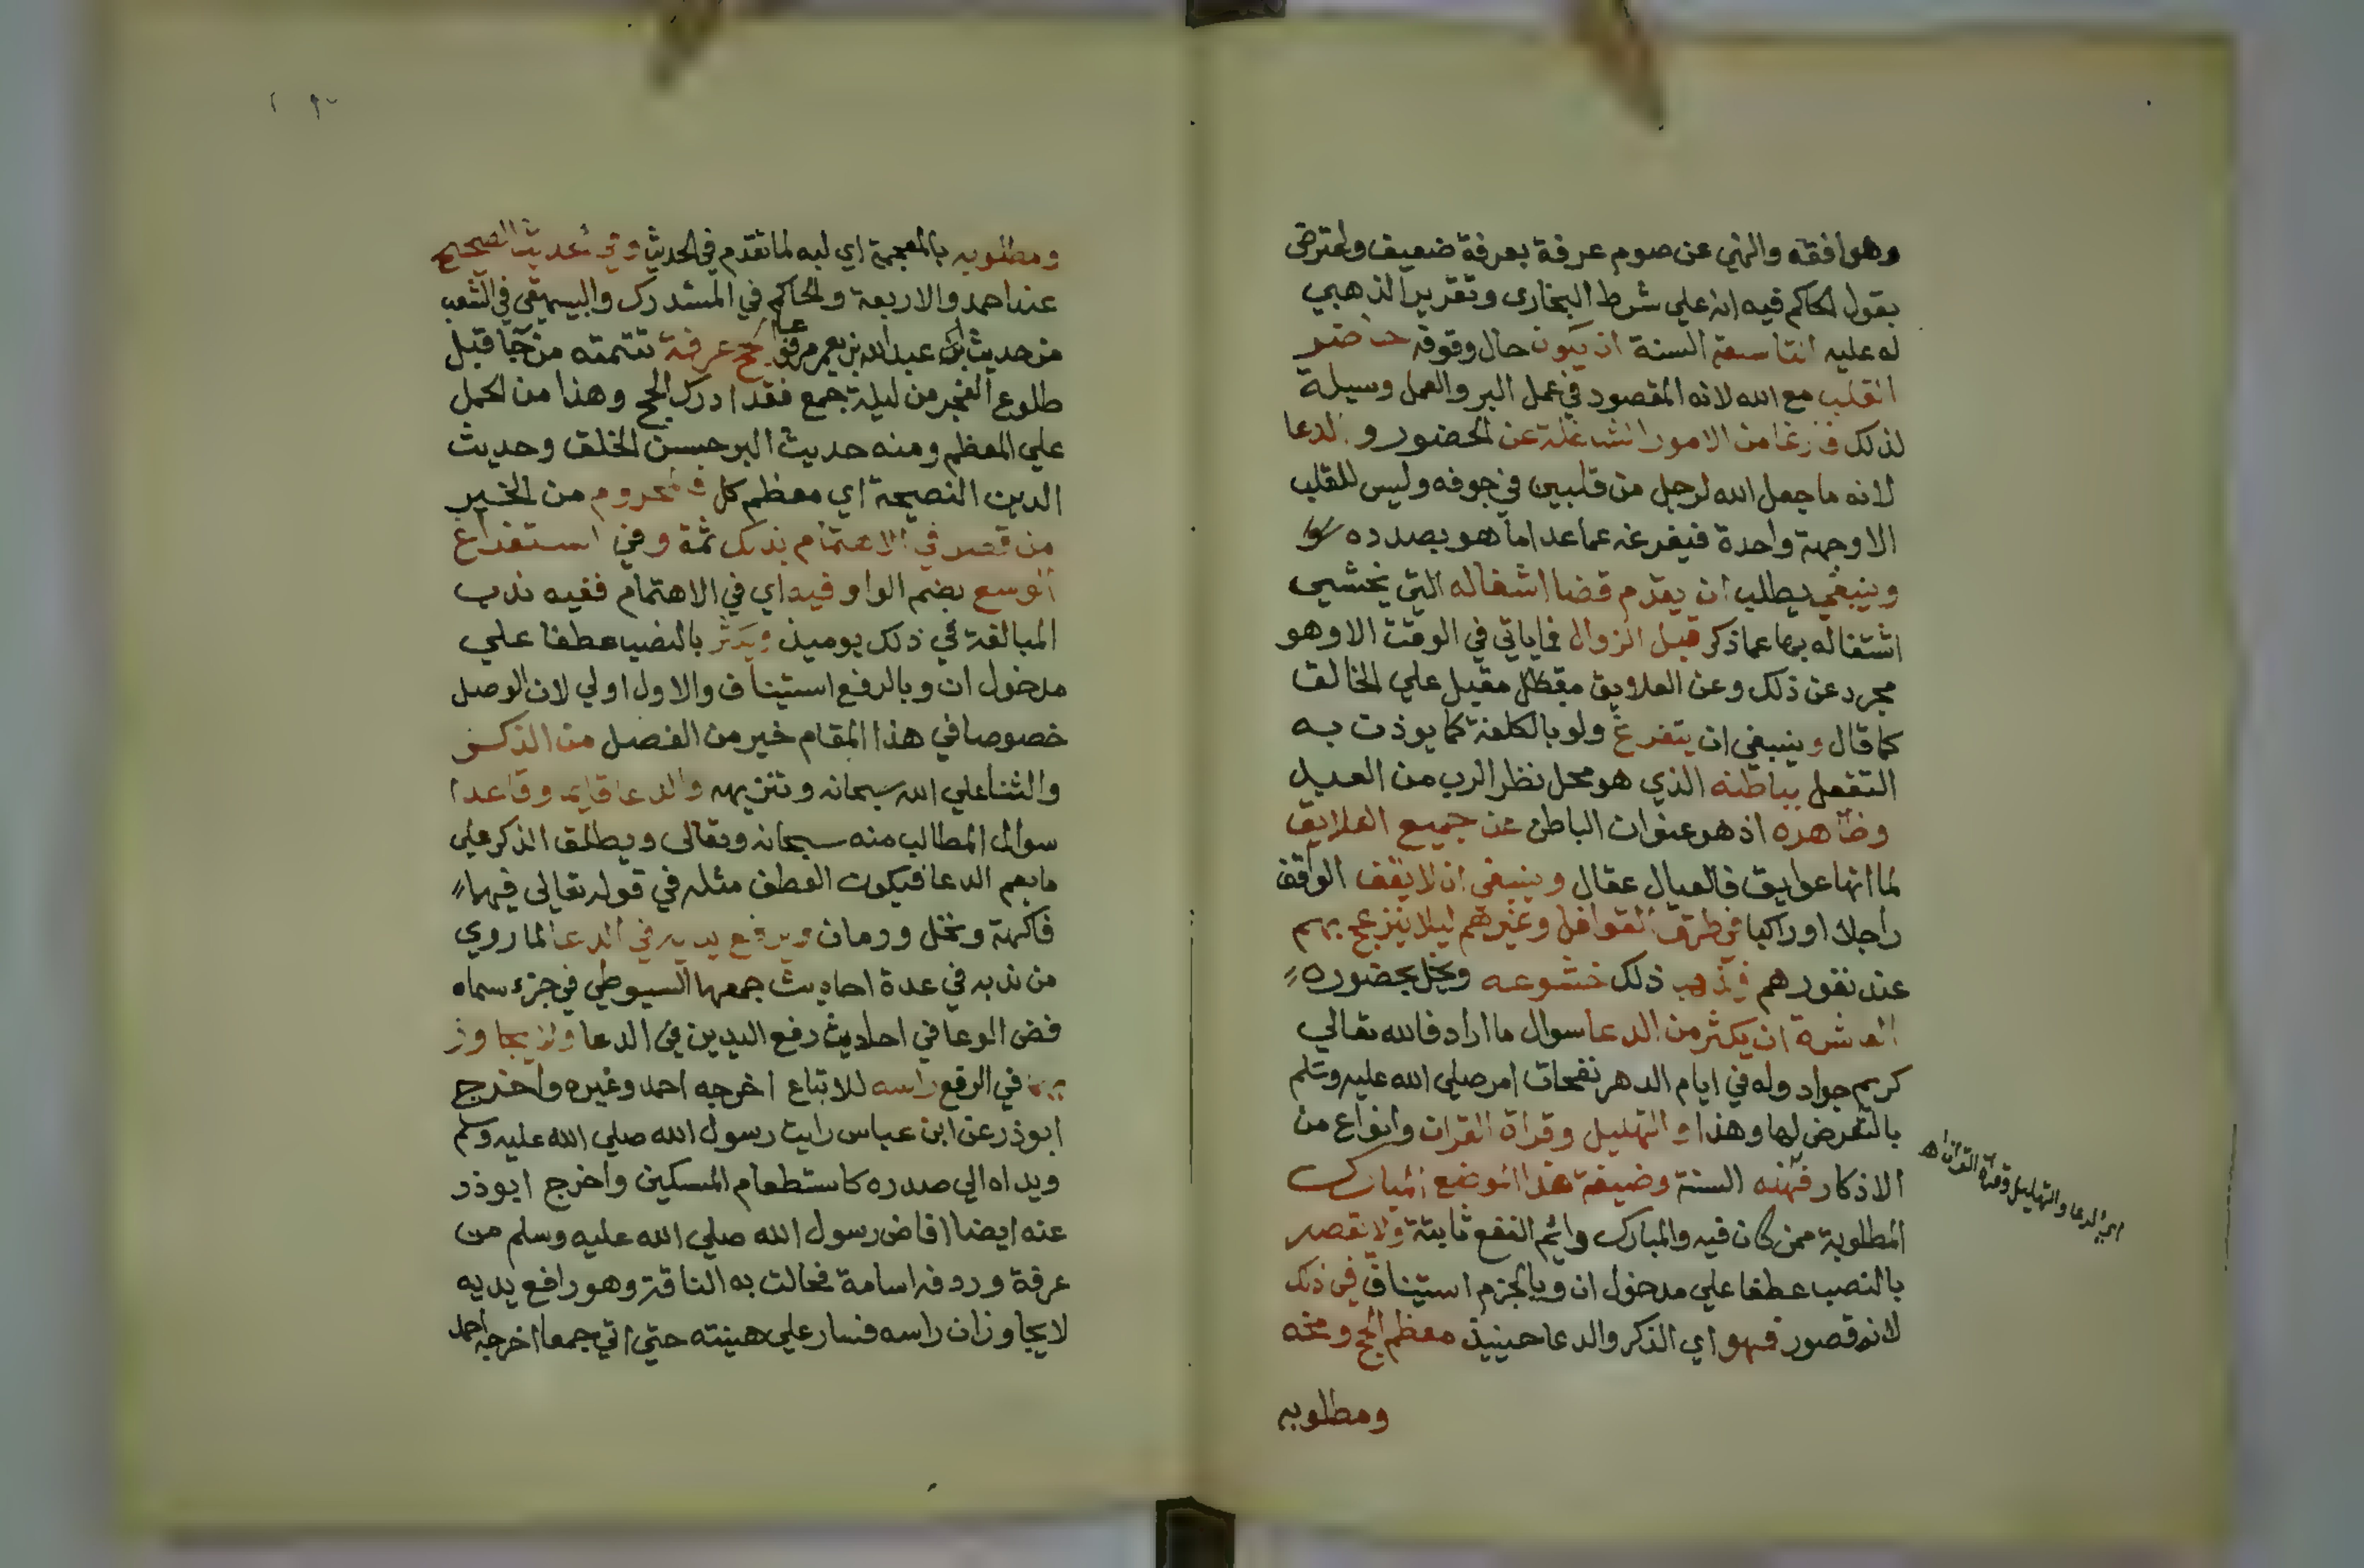 وهوافقه والنهي عن صوم عرفة بعرفة ضعيف واعترض
بقول الحاكم فيه انه علي شرط البخاري وتقرير الذهبي
له عليه التاسعة السنة ان يكون حال وقوفه حاضر
القلب مع الله لانه المقصود في عمل البر والعمل وسيلة
لذلك فارغا من الامور الشاغلة عن الحضور و الدعا
لانه ما جعل الله لرجل من قلبين في جوفه وليس للقلب
الاوجهة واحدة فيفرغه عما عدا ما هو بصدده
وينبغي يطلب ان يقدم قضا اشغاله التي يخشي
اشتغاله بها عما ذكر قبل الزوال فما ياتي في الوقت الا وهو
مجرد عن ذلك وعن العلايق مقبل علي الخالق
كما قال وينبغي ان يتفرغ ولو بالكلفة كما يوذت به
التفعل بباطنه الذي هو محل نظر الرب من العبد
وظاهره اذ هو عنوان الباطن عن جميع العلايق
لما انها عوايق فالعيال عقال وينبغي ان لا يقف الواقف
راجلا او راكبا في طرق القوافل وغيرهم ليلا ينزعج بهم
عند نفورهم فيذهب ذلك خشوعه ويخل بحضوره
العاشرة ان يكثر من الدعا سوال ما اراد فالله تعالي
كريم جواد وله في ايام الدهر نفحات امر صلي الله عليه وسلم
بالتعرض لها وهذا و التهليل وقراة القران وانواع من
الاذكار فهذه السنة وضيفة هذا الموضع المبارك
المطلوبة ممن كان فيه والمبارك دائم النفع ثابتة ولا يقصر
بالنصب عطفا علي مدخول ان وبالجزم استيناف في ذلك
لانه قصور فهو اي الذكر والدعا حينيذ معظم الحج ومخه
ومطلوبه
اي الدعا والتهليل وقراة القران اه
ومطلوبه بالمعجمة اي لبه لما تقدم في الحديث وفي الحديث الصحيح
عند احمد والاربعة والحاكم في المستدرك والبيهقي في الشعب
من حديث عبد الله بن يعمر مرفوعا الحج عرفة تتمته من جا قبل
طلوع الفجر من ليلة جمع فقد ادرك الحج وهذا من الحمل
علي المعظم ومنه حديث البر حسن الخلق وحديث
الدين النصيحة اي معظم كل فالمحروم من الخير
من قصر في الاهتمام بذلك ثمة وفي استفراغ
الوسع بضم الواو فيه اي في الاهتمام ففيه ندب
المبالغة في ذلك يوميذ ويكثر بالنصب عطفا علي
مدخول ان وبالرفع استيناف والاول اولي لان الوصل
خصوصا في هذا المقام خير من الفصل من الذكر
والثنا علي الله سبحانه وتنزيهه والدعا قايما وقاعدا
سوال المطالب منه سبحانه وتعالى ويطلق الذكر علي
ما يعم الدعا فيكون العطف مثله في قوله تعالي فيهما
فاكهة ونخل ورمان ويرفع يديه في الدعا لما روي
من ندبه في عدة احاديث جمعها السيوطي في جزء سماه
فض الوعا في احاديث رفع اليدين في الدعا ولا يجاوز
بهما في الرفع راسه للاتباع اخرجه احمد وغيره واخرج
ابوذر عن ابن عباس رايت رسول الله صلي الله عليه وسلم
ويداه الي صدره كاستطعام المسكين واخرج ابوذر
عنه ايضا افاض رسول الله صلي الله عليه وسلم من
عرفة وردفه اسامة فجالت به الناقة وهو رافع يديه
لا يجاوزان راسه فسار علي هينته حتي اتي جمعا اخرجه احمد